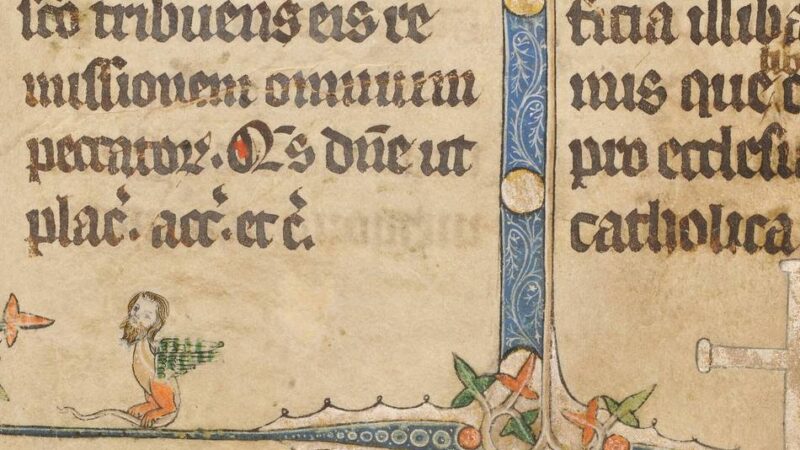 sco tribuens eis re
missionem omnium
peccatoꝝ. Q̄s dn̄e ut
plac̄. acc̄. et c̄.
ficia illiba
mis que
pro ecclesi
catholica